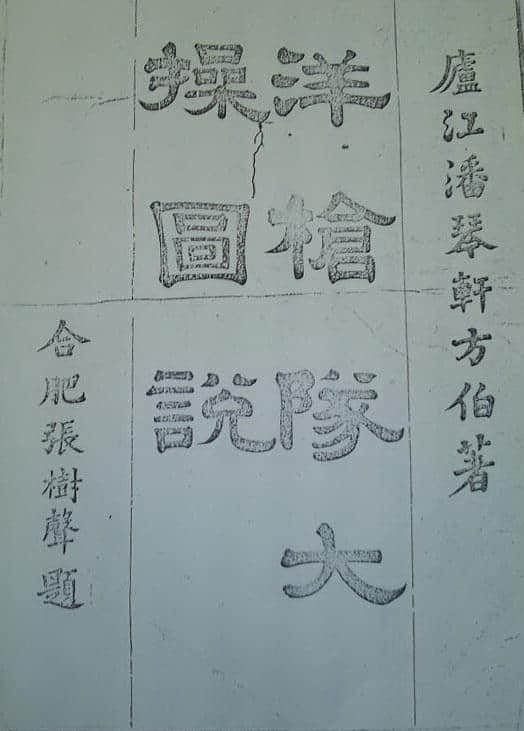 廬江潘琴軒方伯著
洋槍隊大
操圖說
合肥張樹聲題